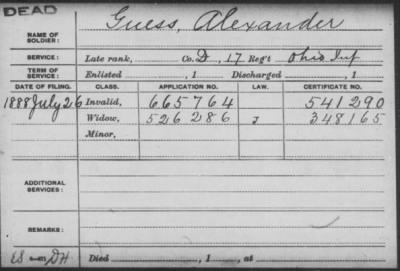 DEAD
NAME OF SOLDIER: Guess, Alexander
SERVICE: Late rank, Co. D, 17 Reg't Ohio Inf
TERM OF SERVICE: Enlisted , 1 Discharged , 1
DATE OF FILING. CLASS. APPLICATION NO. LAW. CERTIFICATE NO.
1888 July 26 Invalid, 665764 541290
Widow, 526286 J 348165
Minor,
ADDITIONAL SERVICES:
REMARKS:
Died , 1 , at